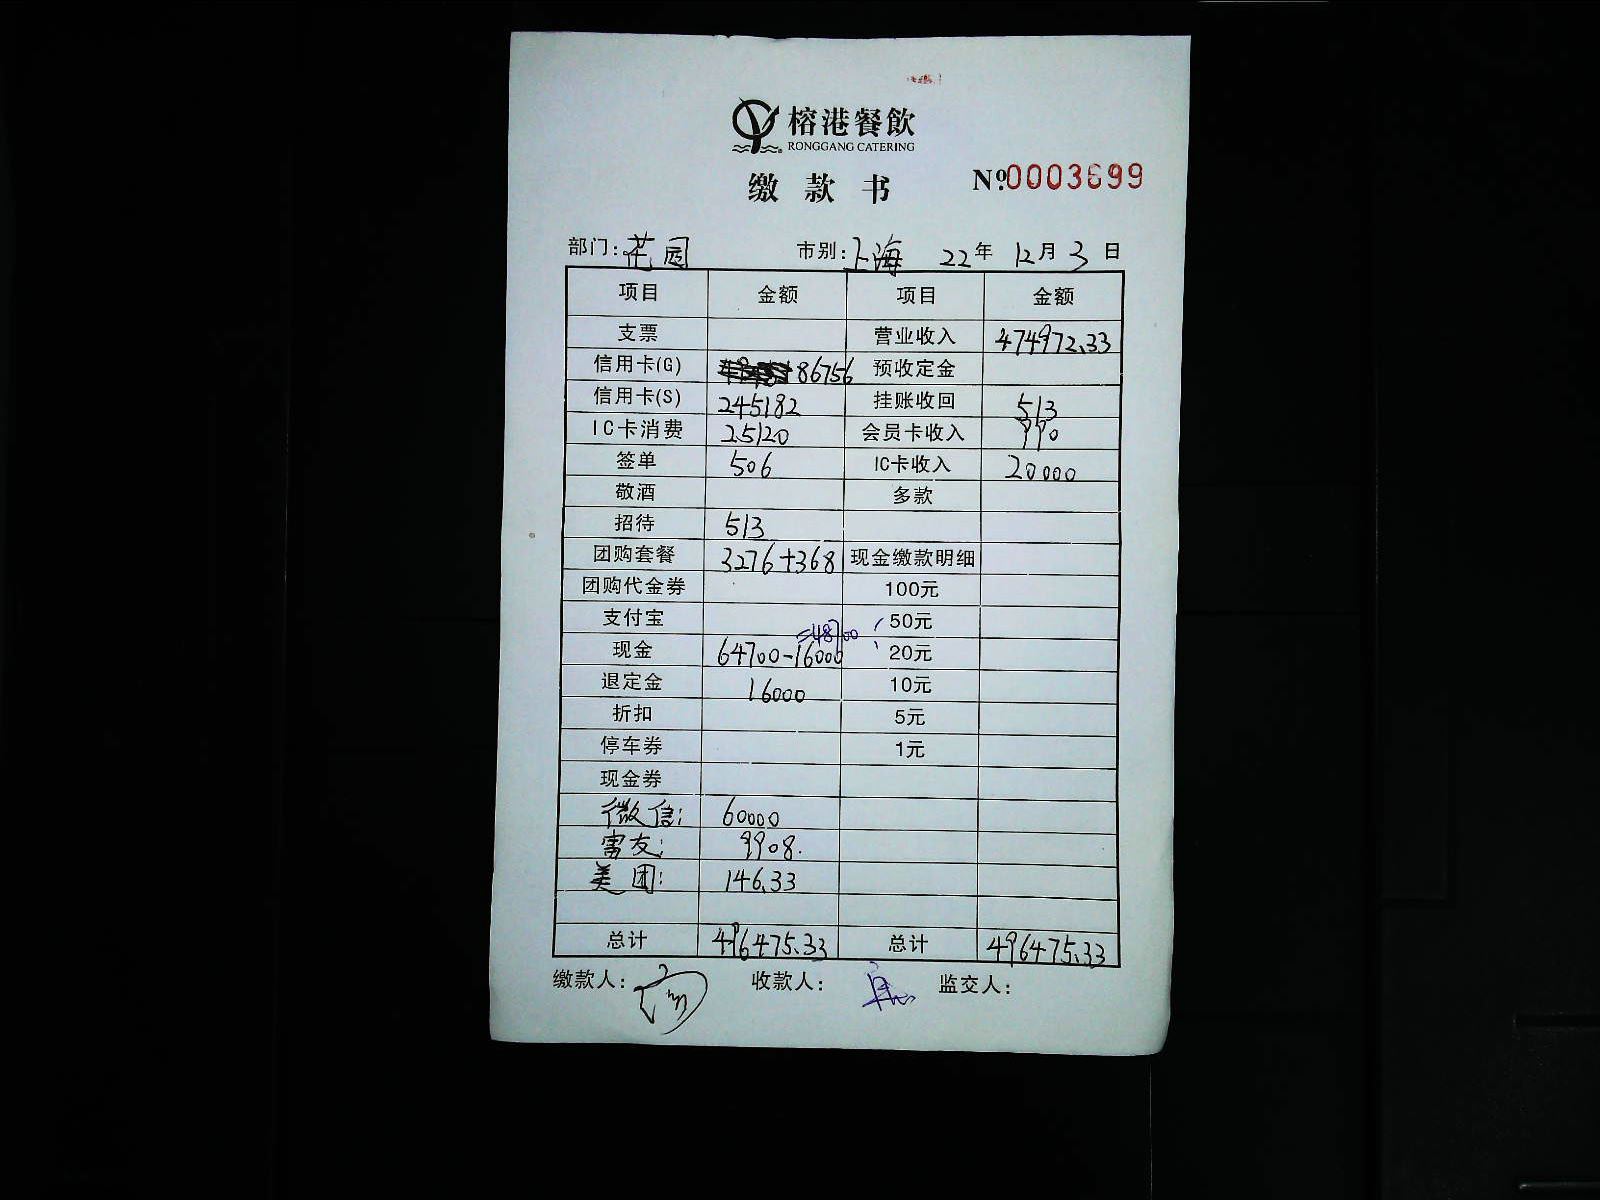 榕港餐飲
RONGGANG CATERING
缴款书 Nº.0003699
部门:花园 市别:上海 22年12月3日
项目 金额 项目 金额
支票 营业收入 474972.33
信用卡(G) 86756 预收定金
信用卡(S) 245182 挂账收回 513
IC卡消费 25120 会员卡收入 990
签单 506 IC卡收入 20000
敬酒 多款
招待 513
团购套餐 3276+368 现金缴款明细
团购代金券 100元
支付宝 50元
=48700
现金 64700-16000 20元
退定金 16000 10元
折扣 5元
停车券 1元
现金券
微信: 60000
雷友: 9908.
美团: 146.33
总计 496475.33 总计 496475.33
缴款人: 收款人: 监交人: